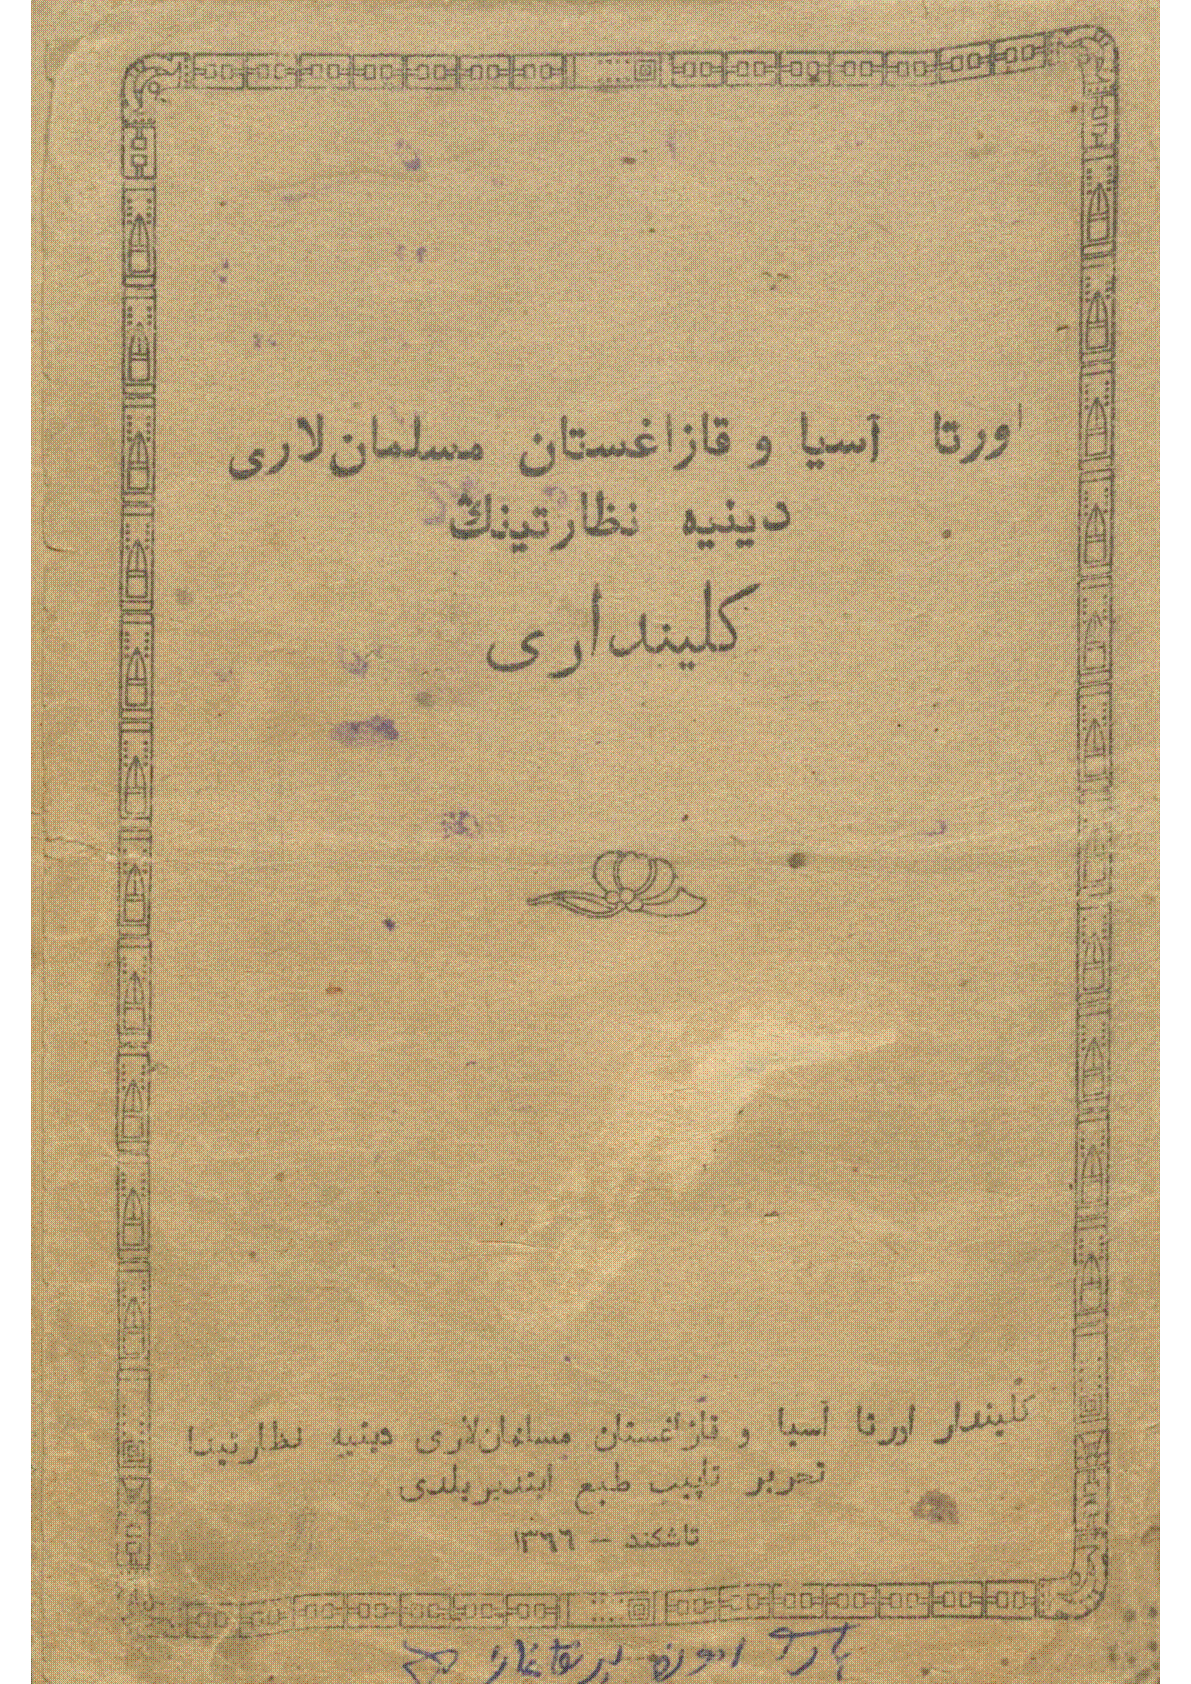 اورتا آسیا و قازاغستان مسلمان‌لاری
دینیه نظارتینڭ
کلینداری
کلیندار اورتا آسیا و قازاغستان مسلمان‌لاری دینیه نظارتیدا
تحریر تاپیب طبع ایتدیریلدی
تاشکند — ۱۳٦٦